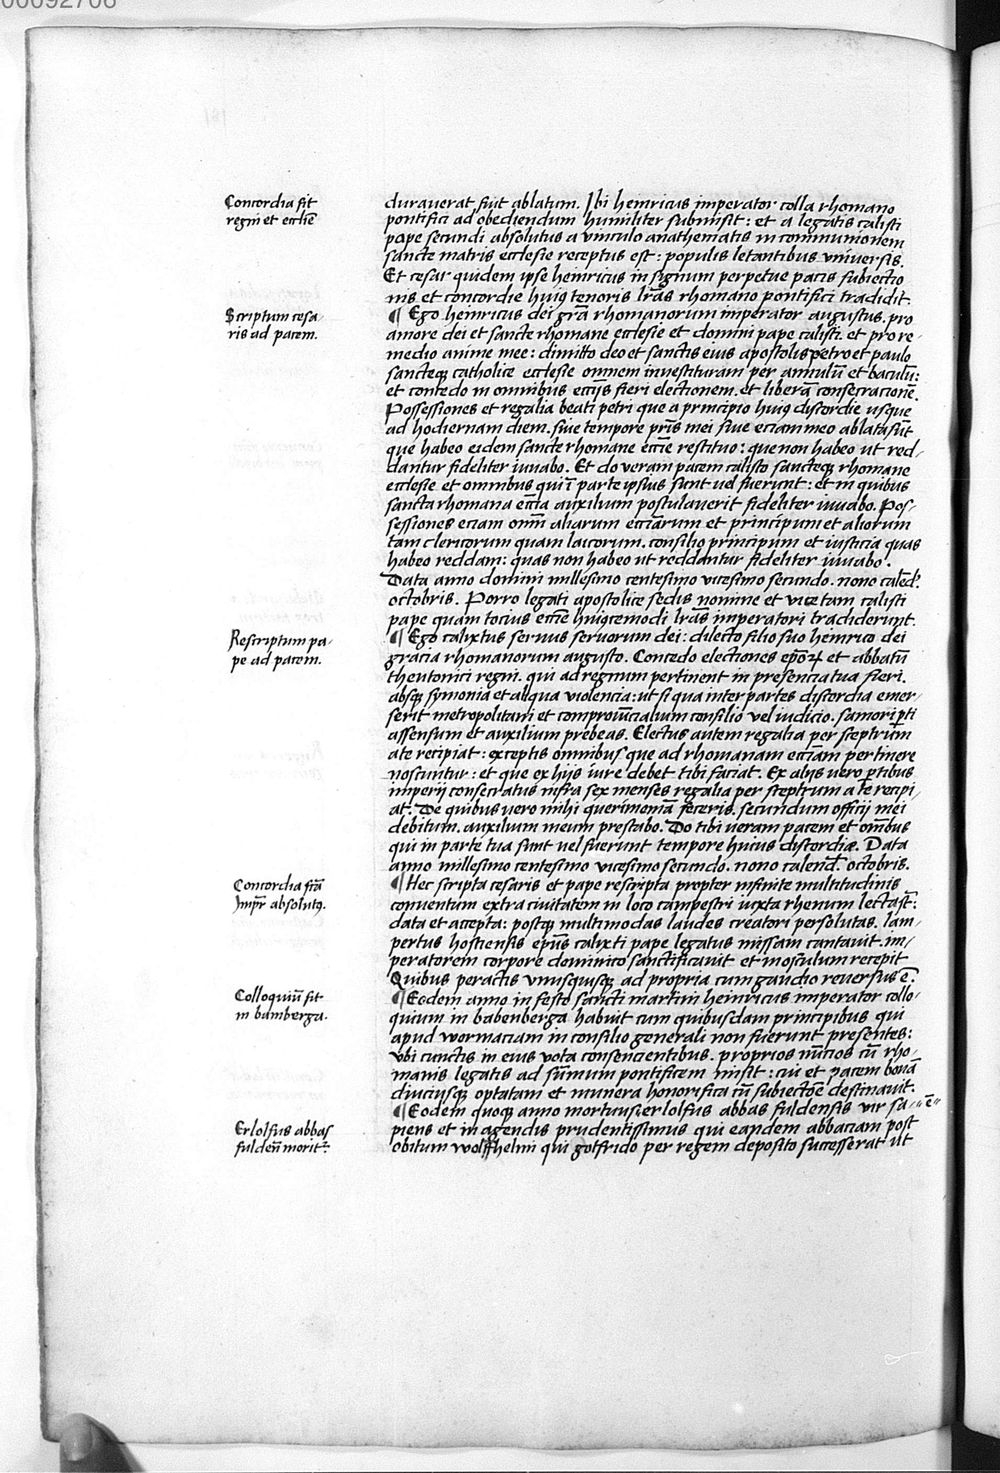 00092706
Concordia fit
regni et eccliē
durauerat fuit ablatum. Ibi heinricus imperator colla rhomano
pontifici ad obediendum humiliter submisit: et a legatis calisti
pape secundi absolutus a vinculo anathematis in communionem
sancte matris ecclesie receptus est: populis letantibus vniuersis.
Et cesar quidem ipse heinricus in signum perpetue pacis subiectio
nis et concordie huiꝰ tenoris lrãs rhomano pontifici tradidit.
Scriptum cesa-
ris ad pacem.
¶ Ego heinricus dei grã rhomanorum imperator augustus. pro
amore dei et sancte rhomane ecclesie et domini pape calisti. et pro re-
medio anime mee: dimitto deo et sanctis eius apostolis petro et paulo
sancteqꝫ catholice ecclesie omnem inuestituram per annulū et baculū:
et concedo in omnibus ecciis fieri electionem. et liberã consecracionē.
Possessiones et regalia beati petri que a principio huiꝰ discordie usque
ad hodiernam diem. siue tempore pr̃is mei siue eciam meo ablata sūt
que habeo eidem sancte rhomane eccīe restituo: que non habeo ut red-
dantur fideliter iuuabo. Et do veram pacem calisto sancteqꝫ rhomane
ecclesie et omnibus qui ī parte ipsius sunt uel fuerunt: et in quibus
sancta rhomana eccīa auxilium postulauerit fideliter iuuabo. Pos-
sessiones eciam omñ aliarum ecciãrum et principum et aliorum
tam clericorum quam laicorum. consilio principum et iusticia quas
habeo reddam: quas non habeo ut reddantur fideliter iuuabo.
Data anno domini millesimo centesimo vicesimo secundo. nono caled.
octobris. Porro legati apostolice sedis nomine et vice tam calisti
pape quam tocius eccīe huiꝰcemodi lrãs imperatori tradiderunt.
Rescriptum pa-
pe ad pacem.
¶ Ego calixtus seruus seruorum dei: dilecto filio suo heinrico dei
gracia rhomanorum augusto. Concedo electiones ep̃oꝝ et abbatū
theutonici regni. qui ad regnum pertinent in presencia tua fieri.
absqꝫ symonia et aliqua violencia: ut si qua inter partes discordia emer-
serit metropolitani et comprouīcialium consilio vel iudicio. saniori p̱ti
assensum et auxilium prebeas. Electus autem regalia per sceptrum
a te recipiat: exceptis omnibus que ad rhomanam ecciãm pertinere
noscuntur: et que ex hijs iure debet tibi faciat. Ex alijs uero p̱tibus
imperii consecratus infra sex menses regalia per sceptrum a te recipi-
at. De quibus uero mihi querimoniã feceris. secundum officij mei
debitum. auxilium meum prestabo. Do tibi ueram pacem et om̃bus
qui in parte tua sunt uel fuerunt tempore huius discordiæ. Data
anno millesimo centesimo vicesimo secundo. nono calend. octobris.
Concordia fcã
Imp̃r absolutꝰ.
¶ Hec scripta cesaris et pape rescripta propter infinite multitudinis
conuentum extra ciuitatem in loco campestri iuxta rhenum lecta st̃:
data et accepta: postqꝫ multimodas laudes creatori persolutas. lam-
pertus hostiensis ep̄us calixti pape legatus missam cantauit. im-
peratorem corpore dominico sanctificauit et in osculum recepit
Quibus peractis vnusquisqꝫ ad propria cum gaudio reuersus ē.
Colloquiū fit
in bamberga.
¶ Eodem anno in festo sancti martini heinricus imperator collo-
quium in babenberga habuit cum quibusdam principibus qui
apud wormaciam in consilio generali non fuerunt presentes:
vbi cunctis in eius vota consencientibus. proprios nūcios cū rho-
manis legatis ad sūmum pontificem misit: cui et pacem bonã
diuciusqꝫ optatam et munera honorifica cū subiectōe destinauit.
Erlolfus abbas
fuldeñ morit̃.
¶ Eodem quoqꝫ anno mortuus erlolfus abbas fuldensis vir sa- "ē"
piens et in agendis prudentissimus qui eandem abbaciam post
obitum wolffhelmi qui gotfrido per regem deposito successerat ut